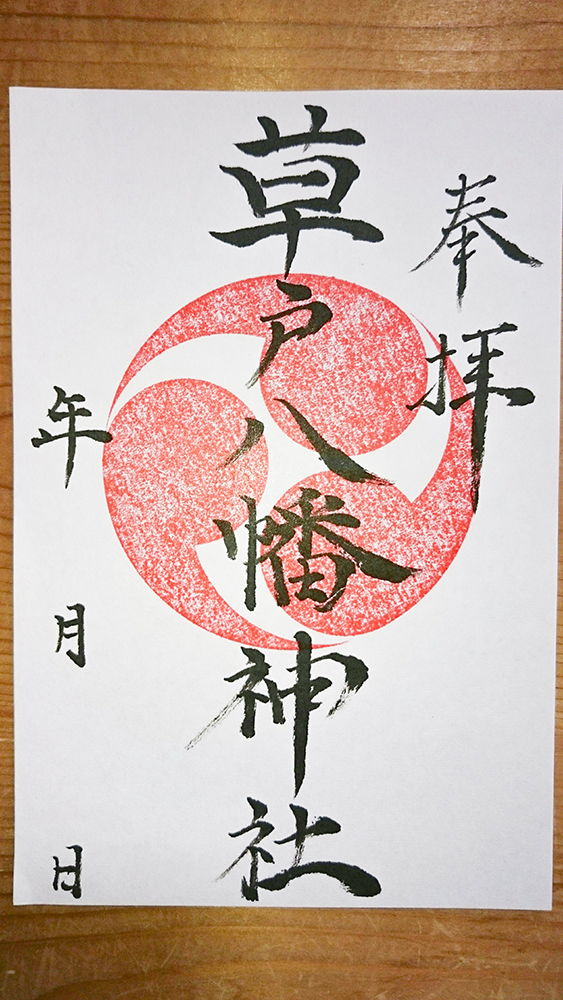 奉拝
草戸八幡神社
年 月 日